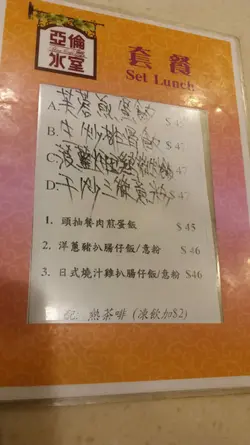 亞倫
冰室
套餐
Set Lunch
A. $45
B. 牛 飯 $47
C. 菠蘿 $47
D. 干炒三 意粉 $47
1. 頭抽餐肉煎蛋飯 $45
2. 洋蔥豬扒腸仔飯/意粉 $46
3. 日式燒汁雞扒腸仔飯/意粉 $46
配 熱茶啡 (凍飲加$2)